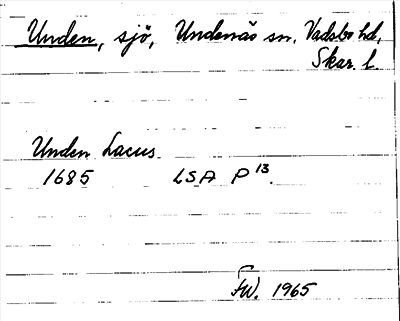 Unden, sjö, Undenäs sn, Vadsbo hd,
Skar. l.
Unden Lacus.
1685 LSA P 13.
FW. 1965